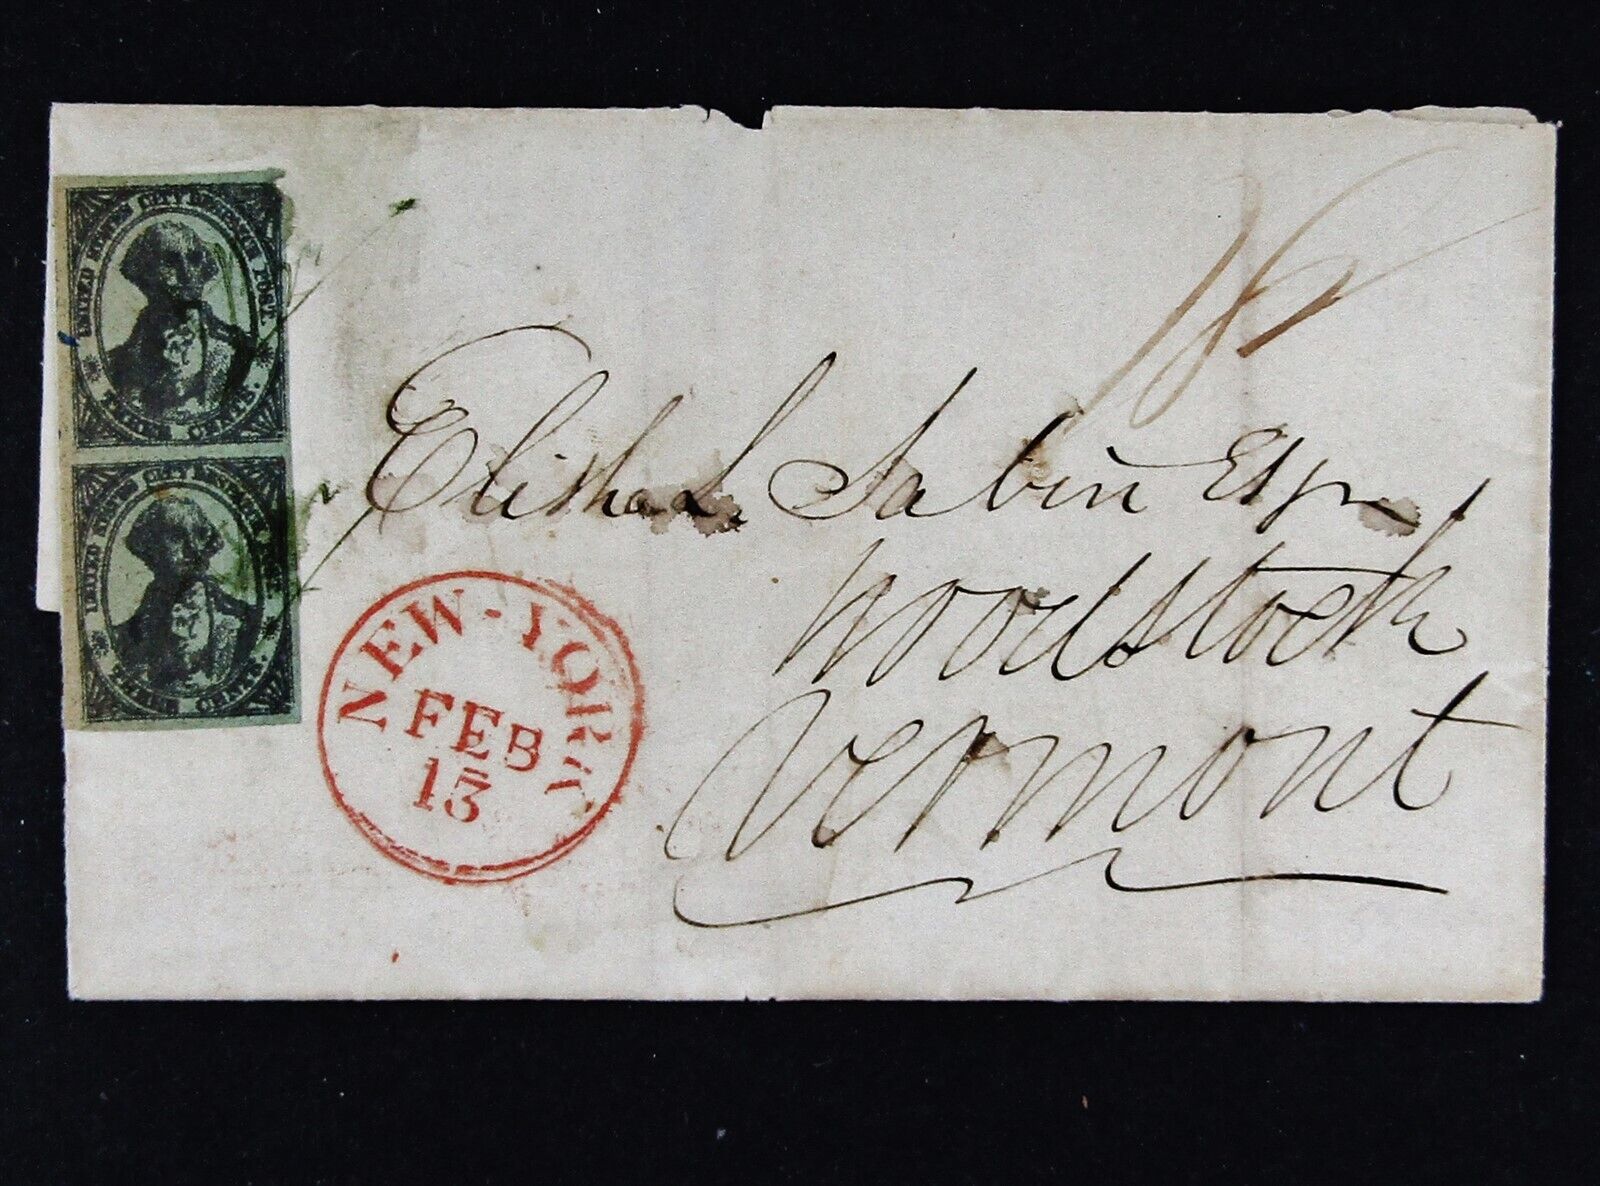 UNITED STATES CITY DESPATCH POST.
THREE CENTS.
UNITED STATES CITY DESPATCH POST.
THREE CENTS.
NEW-YORK
FEB
13
Elisha L. Sabin Esqr
Woodstock
Vermont